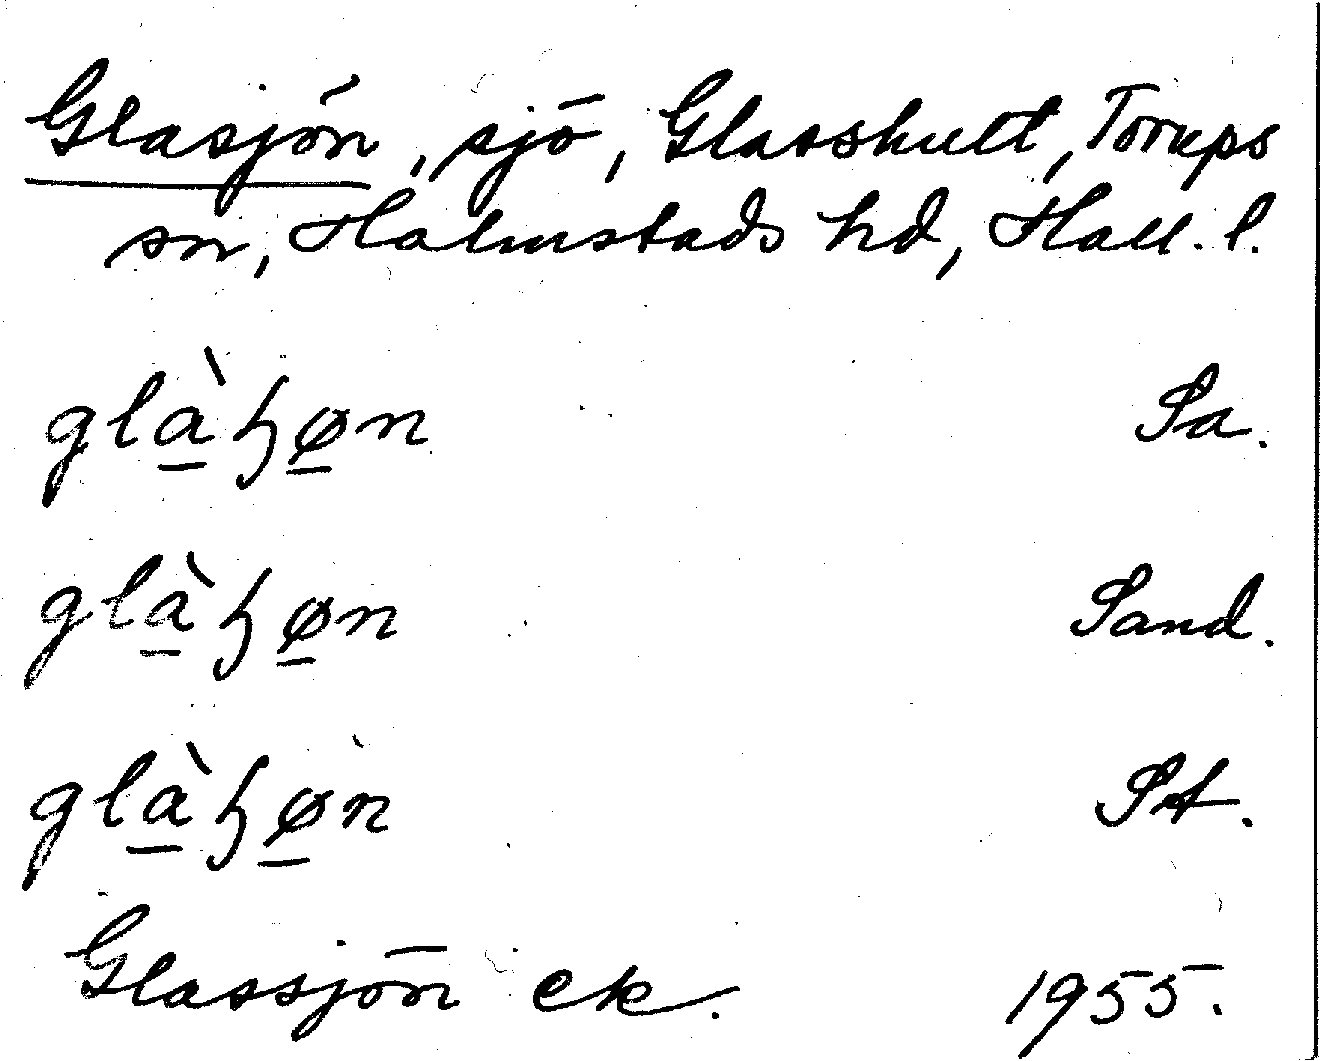 Glasjön, sjö, Glasshult, Torups
sn, Halmstads hd, Hall. l.
glà̲ɧø̲n Sa.
glà̲ɧø̲n Sand.
glà̲ɧø̲n St.
Glassjön ek. 1955.